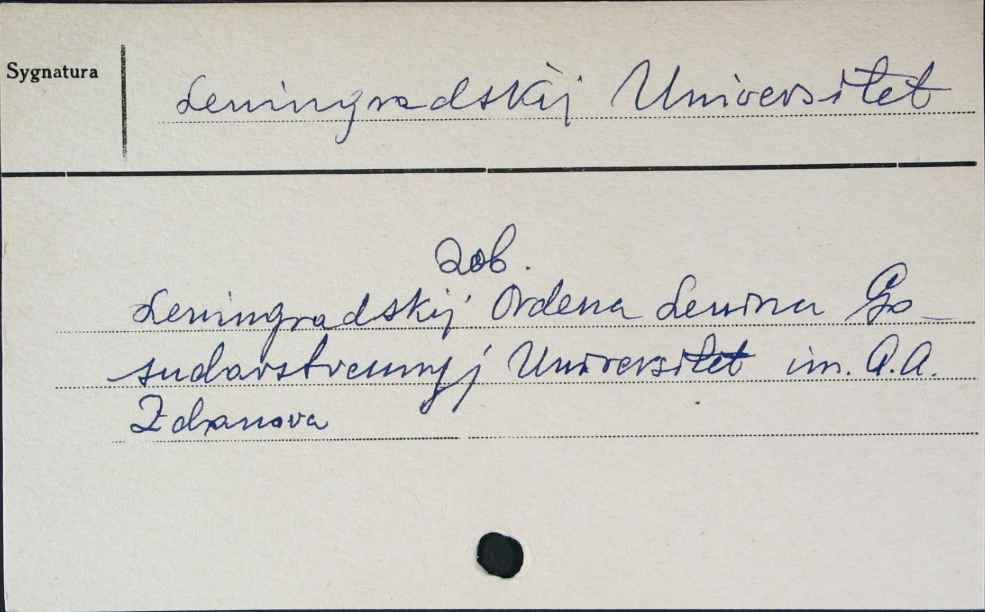 Sygnatura
Leningradskij Universitet
zob.
Leningradskij Ordena Lenina Go-
sudarstvennyj Universitet im. A.A.
Zdanova